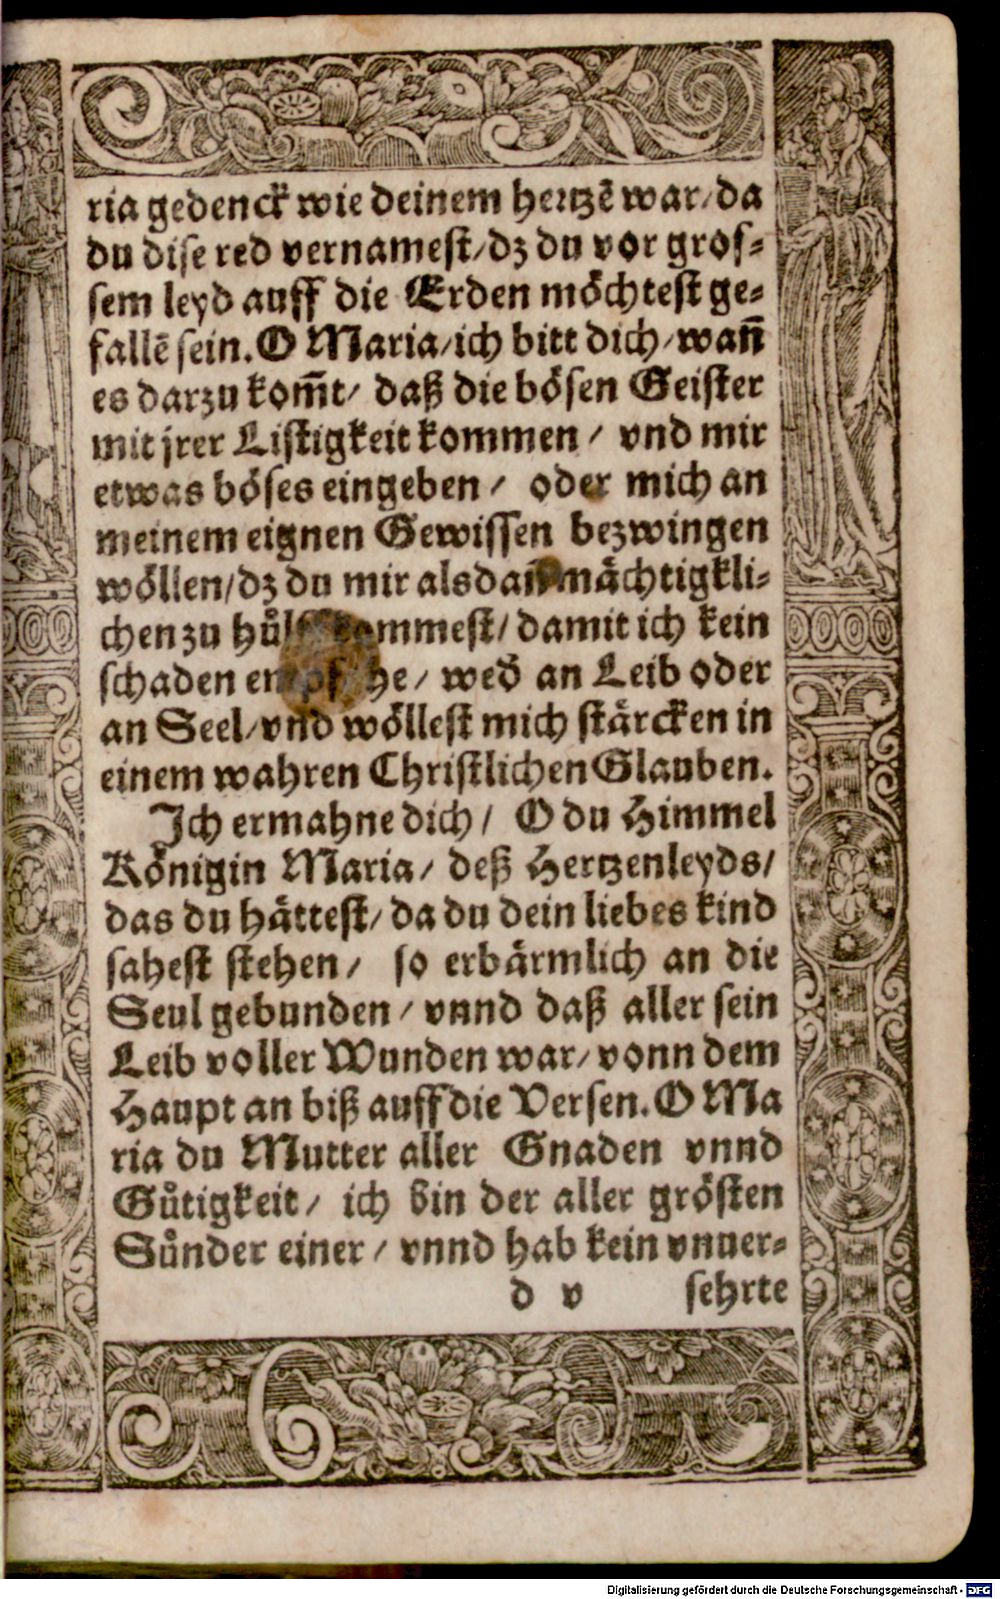 ria gedenck wie deinem hertzē war/da
du dise red vernamest/dz du vor gros-
sem leyd auff die Erden möchtest ge-
fallē sein. O Maria/ich bitt dich/wañ
es darzu kom̃t/ daß die bösen Geister
mit jrer Listigkeit kommen / vnd mir
etwas böses eingeben / oder mich an
meinem eignen Gewissen bezwingen
wöllen/dz du mir alsdañ mächtigkli-
chen zu hůlff kommest/ damit ich kein
schaden empfahe/ wed̄ an Leib oder
an Seel/vnd wöllest mich stärcken in
einem wahren Christlichen Glauben.
Ich ermahne dich/ O du Himmel
Königin Maria/ deß Hertzenleyds/
das du hättest/ da du dein liebes kind
sahest stehen/ so erbärmlich an die
Seul gebunden / vnnd daß aller sein
Leib voller Wunden war/ vonn dem
Haupt an biß auff die Versen. O Ma
ria du Mutter aller Gnaden vnnd
Gůtigkeit/ ich bin der aller grösten
Sůnder einer / vnnd hab kein vnuer-
d v sehrte
Digitalisierung gefördert durch die Deutsche Forschungsgemeinschaft - DFG